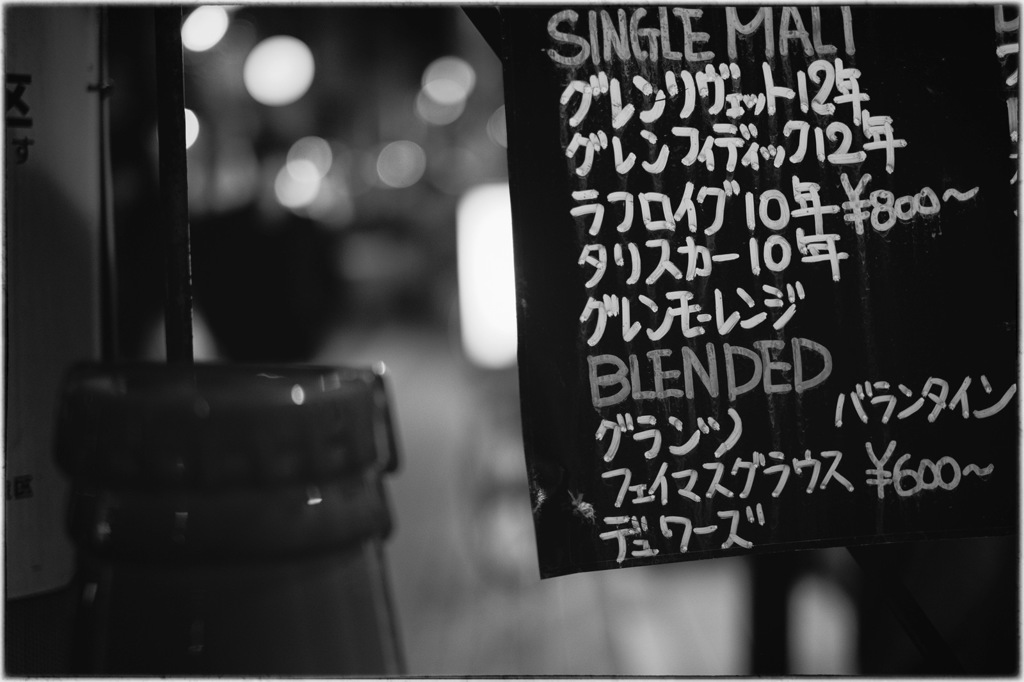 SINGLE MALT
グレンリヴェット12年
グレンフィディック12年
ラフロイグ10年 ¥800~
タリスカー10年
グレンモーレンジ
BLENDED
バランタイン
グランツ
フェイマスグラウス ¥600~
デュワーズ